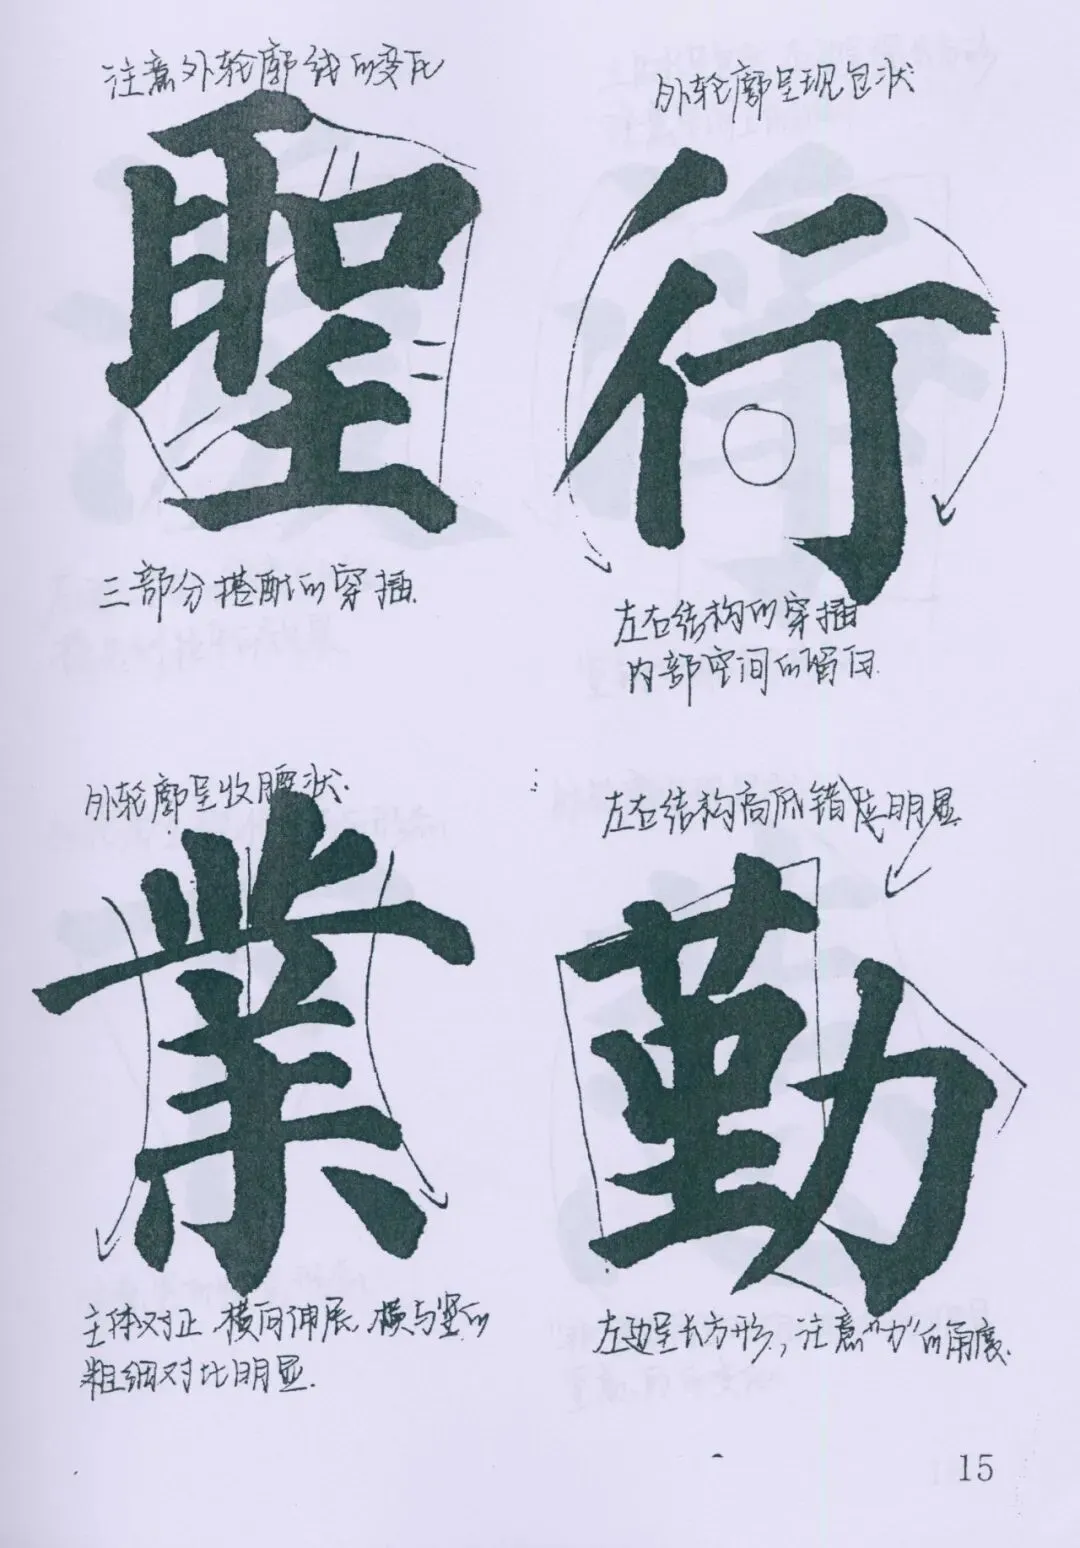 注意外轮廓线的变化
聖
三部分搭配的穿插.
外轮廓呈现包状
行
左右结构的穿插
内部空间的留白.
外轮廓呈收腰状.
業
主体对正,横向伸展,横与竖的
粗细对比明显.
左右结构高低错落明显
勤
左边呈长方形,注意“力”的角度.
15